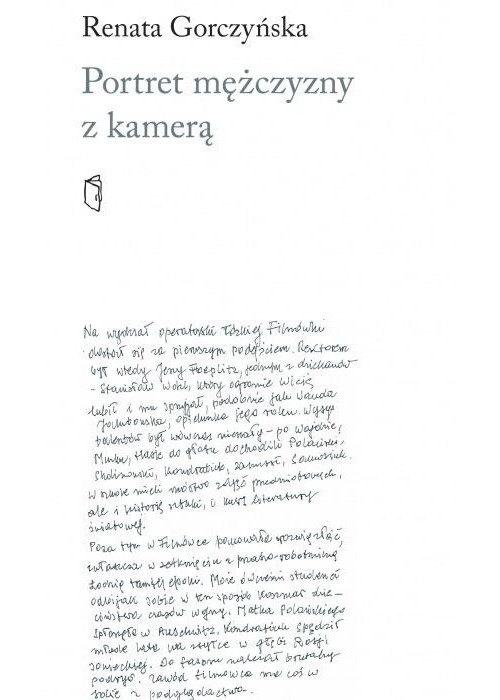 Renata Gorczyńska
Portret mężczyzny
z kamerą
Na wydział operatorski łódzkiej Filmówki
dostał się za pierwszym podejściem. Rektorem
był wtedy Jerzy Toeplitz, jednym z dziekanów
- Stanisław Wohl, który ogromnie Wicia
lubił i mu sprzyjał, podobnie jak Wanda
Jakubowska, opiekunka jego roku. Wysyp
talentów był wówczas niemały - po wojnie,
Munku, Hasie do głosu dochodzili Polański,
Skolimowski, Kondratiuk, Zanussi,
W szkole mieli mnóstwo zajęć przedmiotowych,
ale i historię sztuki, i kurs literatury
światowej.
Poza tym w Filmówce panowała rozwiązłość,
zwłaszcza w zetknięciu z pruderią
Łodzią tamtej epoki. Może ówcześni studenci
odbijali sobie w ten sposób koszmar dzie-
ciństwa czasów wojny. Matka Polańskiego
spłonęła w Auschwitz. Kondratiuk spędził
młode lata na zsyłce w głębi Rosji
sowieckiej. Do fasonu należał brutalny
podryw. Zawód filmowca ma coś w
sobie z podglądactwa.